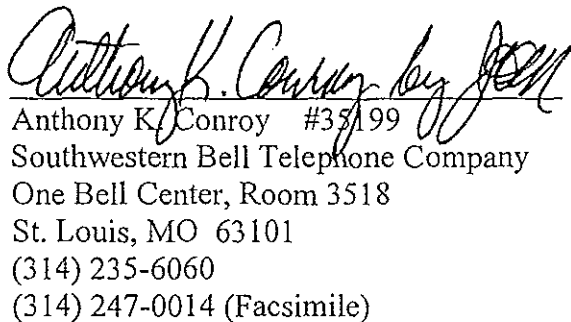 Anthony K. Conroy by JPM
Anthony K. Conroy #35199
Southwestern Bell Telephone Company
One Bell Center, Room 3518
St. Louis, MO 63101
(314) 235-6060
(314) 247-0014 (Facsimile)